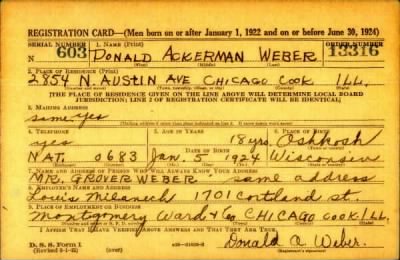 REGISTRATION CARD—(Men born on or after January 1, 1922 and on or before June 30, 1924)
SERIAL NUMBER 1. NAME (Print) ORDER NUMBER
N 603 DONALD ACKERMAN WEBER 13316
2. PLACE OF RESIDENCE (Print)
2854 N. AUSTIN AVE CHICAGO COOK ILL.
[THE PLACE OF RESIDENCE GIVEN ON THE LINE ABOVE WILL DETERMINE LOCAL BOARD
JURISDICTION; LINE 2 OF REGISTRATION CERTIFICATE WILL BE IDENTICAL]
3. MAILING ADDRESS
same yes
4. TELEPHONE 5. AGE IN YEARS 6. PLACE OF BIRTH
yes 18 yrs. Oshkosh
DATE OF BIRTH
NAT. 0683 Jan. 5 1924 Wisconsin
7. NAME AND ADDRESS OF PERSON WHO WILL ALWAYS KNOW YOUR ADDRESS
MR. GROVER WEBER same address
8. EMPLOYER'S NAME AND ADDRESS
Louis 1701 Cortland st.
9. PLACE OF EMPLOYMENT OR BUSINESS
Montgomery Ward & Co. CHICAGO COOK ILL.
I AFFIRM THAT I HAVE VERIFIED ABOVE ANSWERS AND THAT THEY ARE TRUE.
D. S. S. Form 1
(Revised 6-1-42)
Donald A Weber.